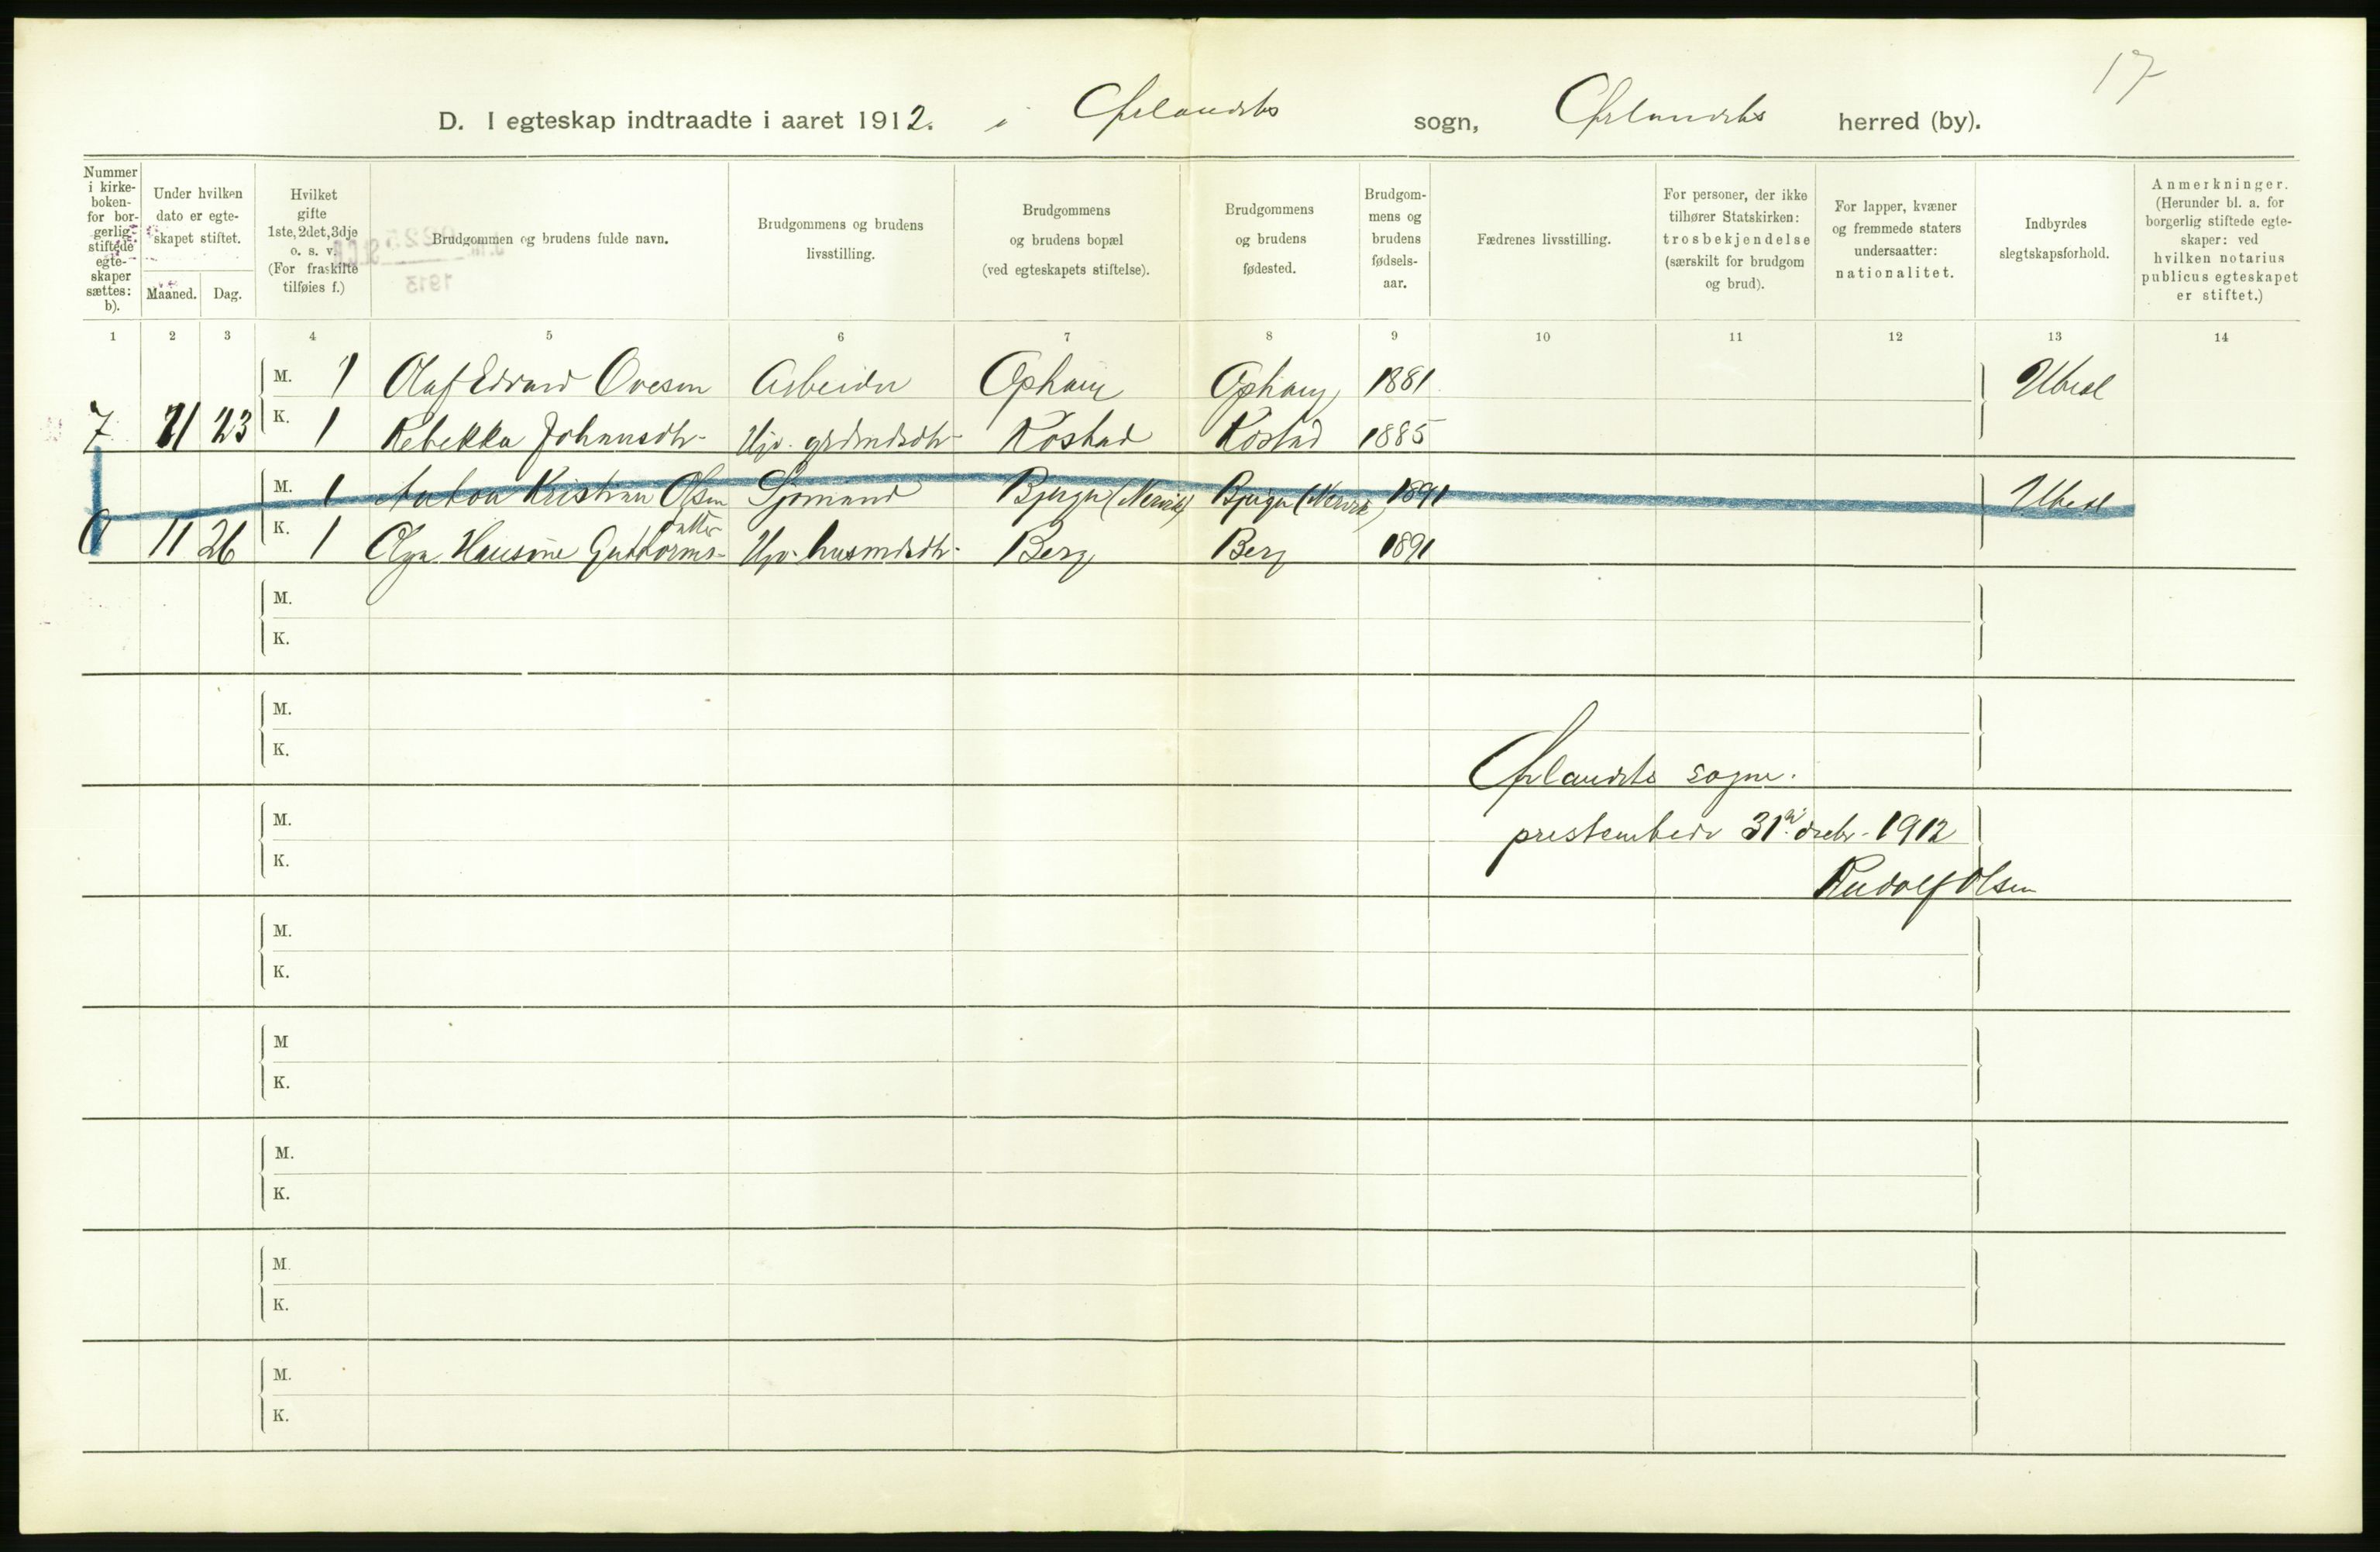 17
D. I egteskap indtraadte i aaret 1912. i Ørlandets sogn, Ørlandets herred (by).
Nummer i kirke- boken- for bor- gerlig stiftede egte- skaper sættes: b).
Under hvilken dato er egte- skapet stiftet.
Maaned. Dag.
Hvilket gifte 1ste, 2det, 3dje o. s. v. (For fraskilte tilføies f.)
Brudgommen og brudens fulde navn.
Brudgommens og brudens livsstilling.
Brudgommens og brudens bopæl (ved egteskapets stiftelse).
Brudgommens og brudens fødested.
Brudgom- mens og brudens fødsels- aar.
Fædrenes livsstilling.
For personer, der ikke tilhører Statskirken: trosbekjendelse (særskilt for brudgom og brud).
For lapper, kvæner og fremmede staters undersaatter: nationalitet.
Indbyrdes slegtskapsforhold.
Anmerkninger. (Herunder bl. a. for borgerlig stiftede egte- skaper: ved hvilken notarius publicus egteskapet er stiftet.)
1 2 3 4 5 6 7 8 9 10 11 12 13 14
M. 1 Olaf Edvard Ovesen Arbeider Ophaug Ophaug 1881 Ubesl
7 11 23 K. 1 Rebekka Johannsdtr. Ugv. grdmdsdtr. Røstad Røstad 1885
M. 1 Anton Kristian Olsen Sjømand Bjugn (Nervik) Bjugn (Nervik) 1891 Ubesl
11 26 K. 1 Olga Hansine Guttorms- datter Ugv. husmdsdtr. Berg Berg 1891
M.
K.
M.
K.
Ørlandets sogne-
M.
prestembede 31te decbr. 1912
K.
Rudolf Olsen
M.
K.
M
K.
M.
K.
M.
K.
M.
K.